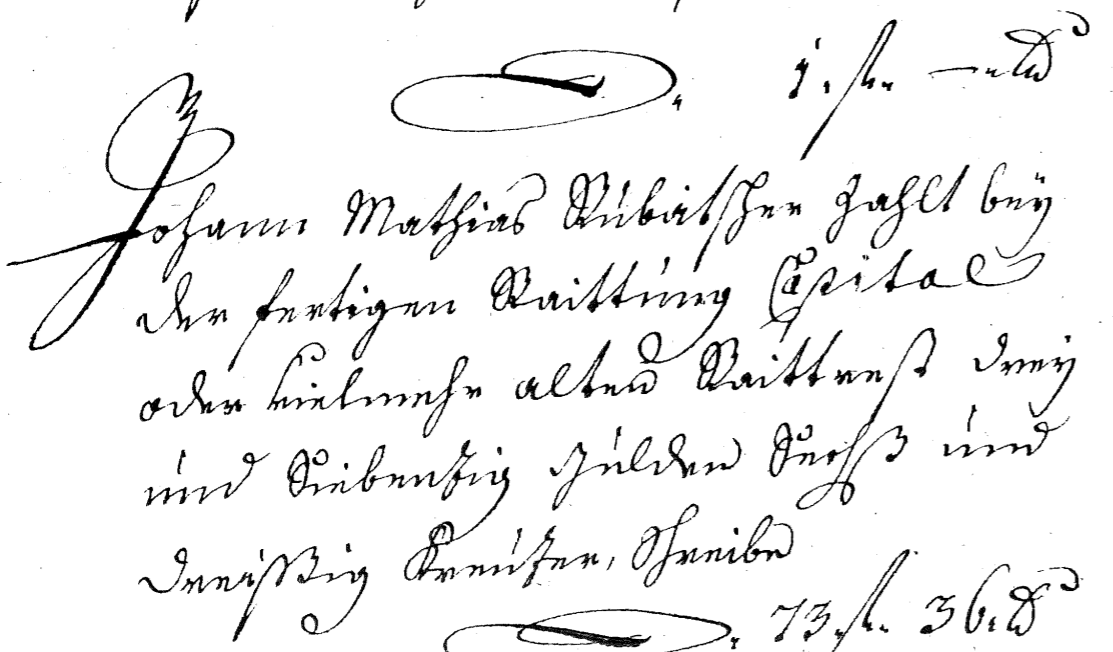 1. fl. — xr
Johann Mathias Rubatscher zahlt bey
der fertigen Raittung Capital
oder vielmehr alten Raittrest drey
und Siebenzig Gulden Sechß und
dreißig Kreuzer, Schreibe
73. fl. 36. xr